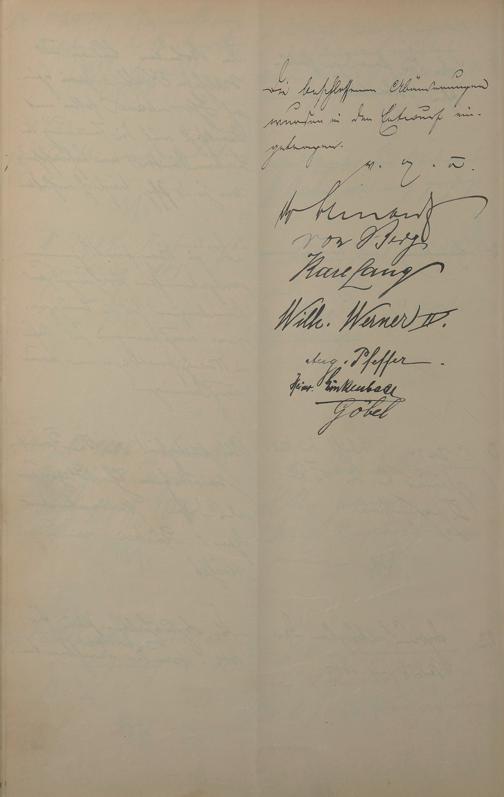 Die beschlossenen Abänderungen
wurden in den Entwurf ein-
getragen.
v. g. u.
von Berg
Karl Lang
Wilh. Werner IV.
Aug. Pfeffer.
Heinr. Linkenbach
Göbel